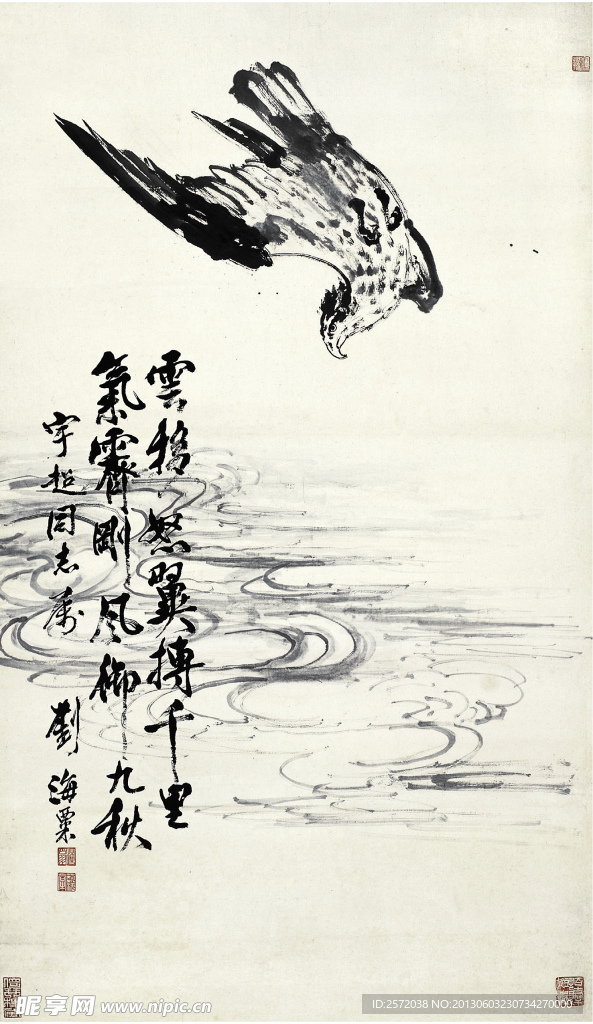 雲移怒翼搏千里
氣霽剛風御九秋
宇超同志屬
劉海粟
昵享网 www.nipic.cn
ID:2572038 NO:20130603230734270000